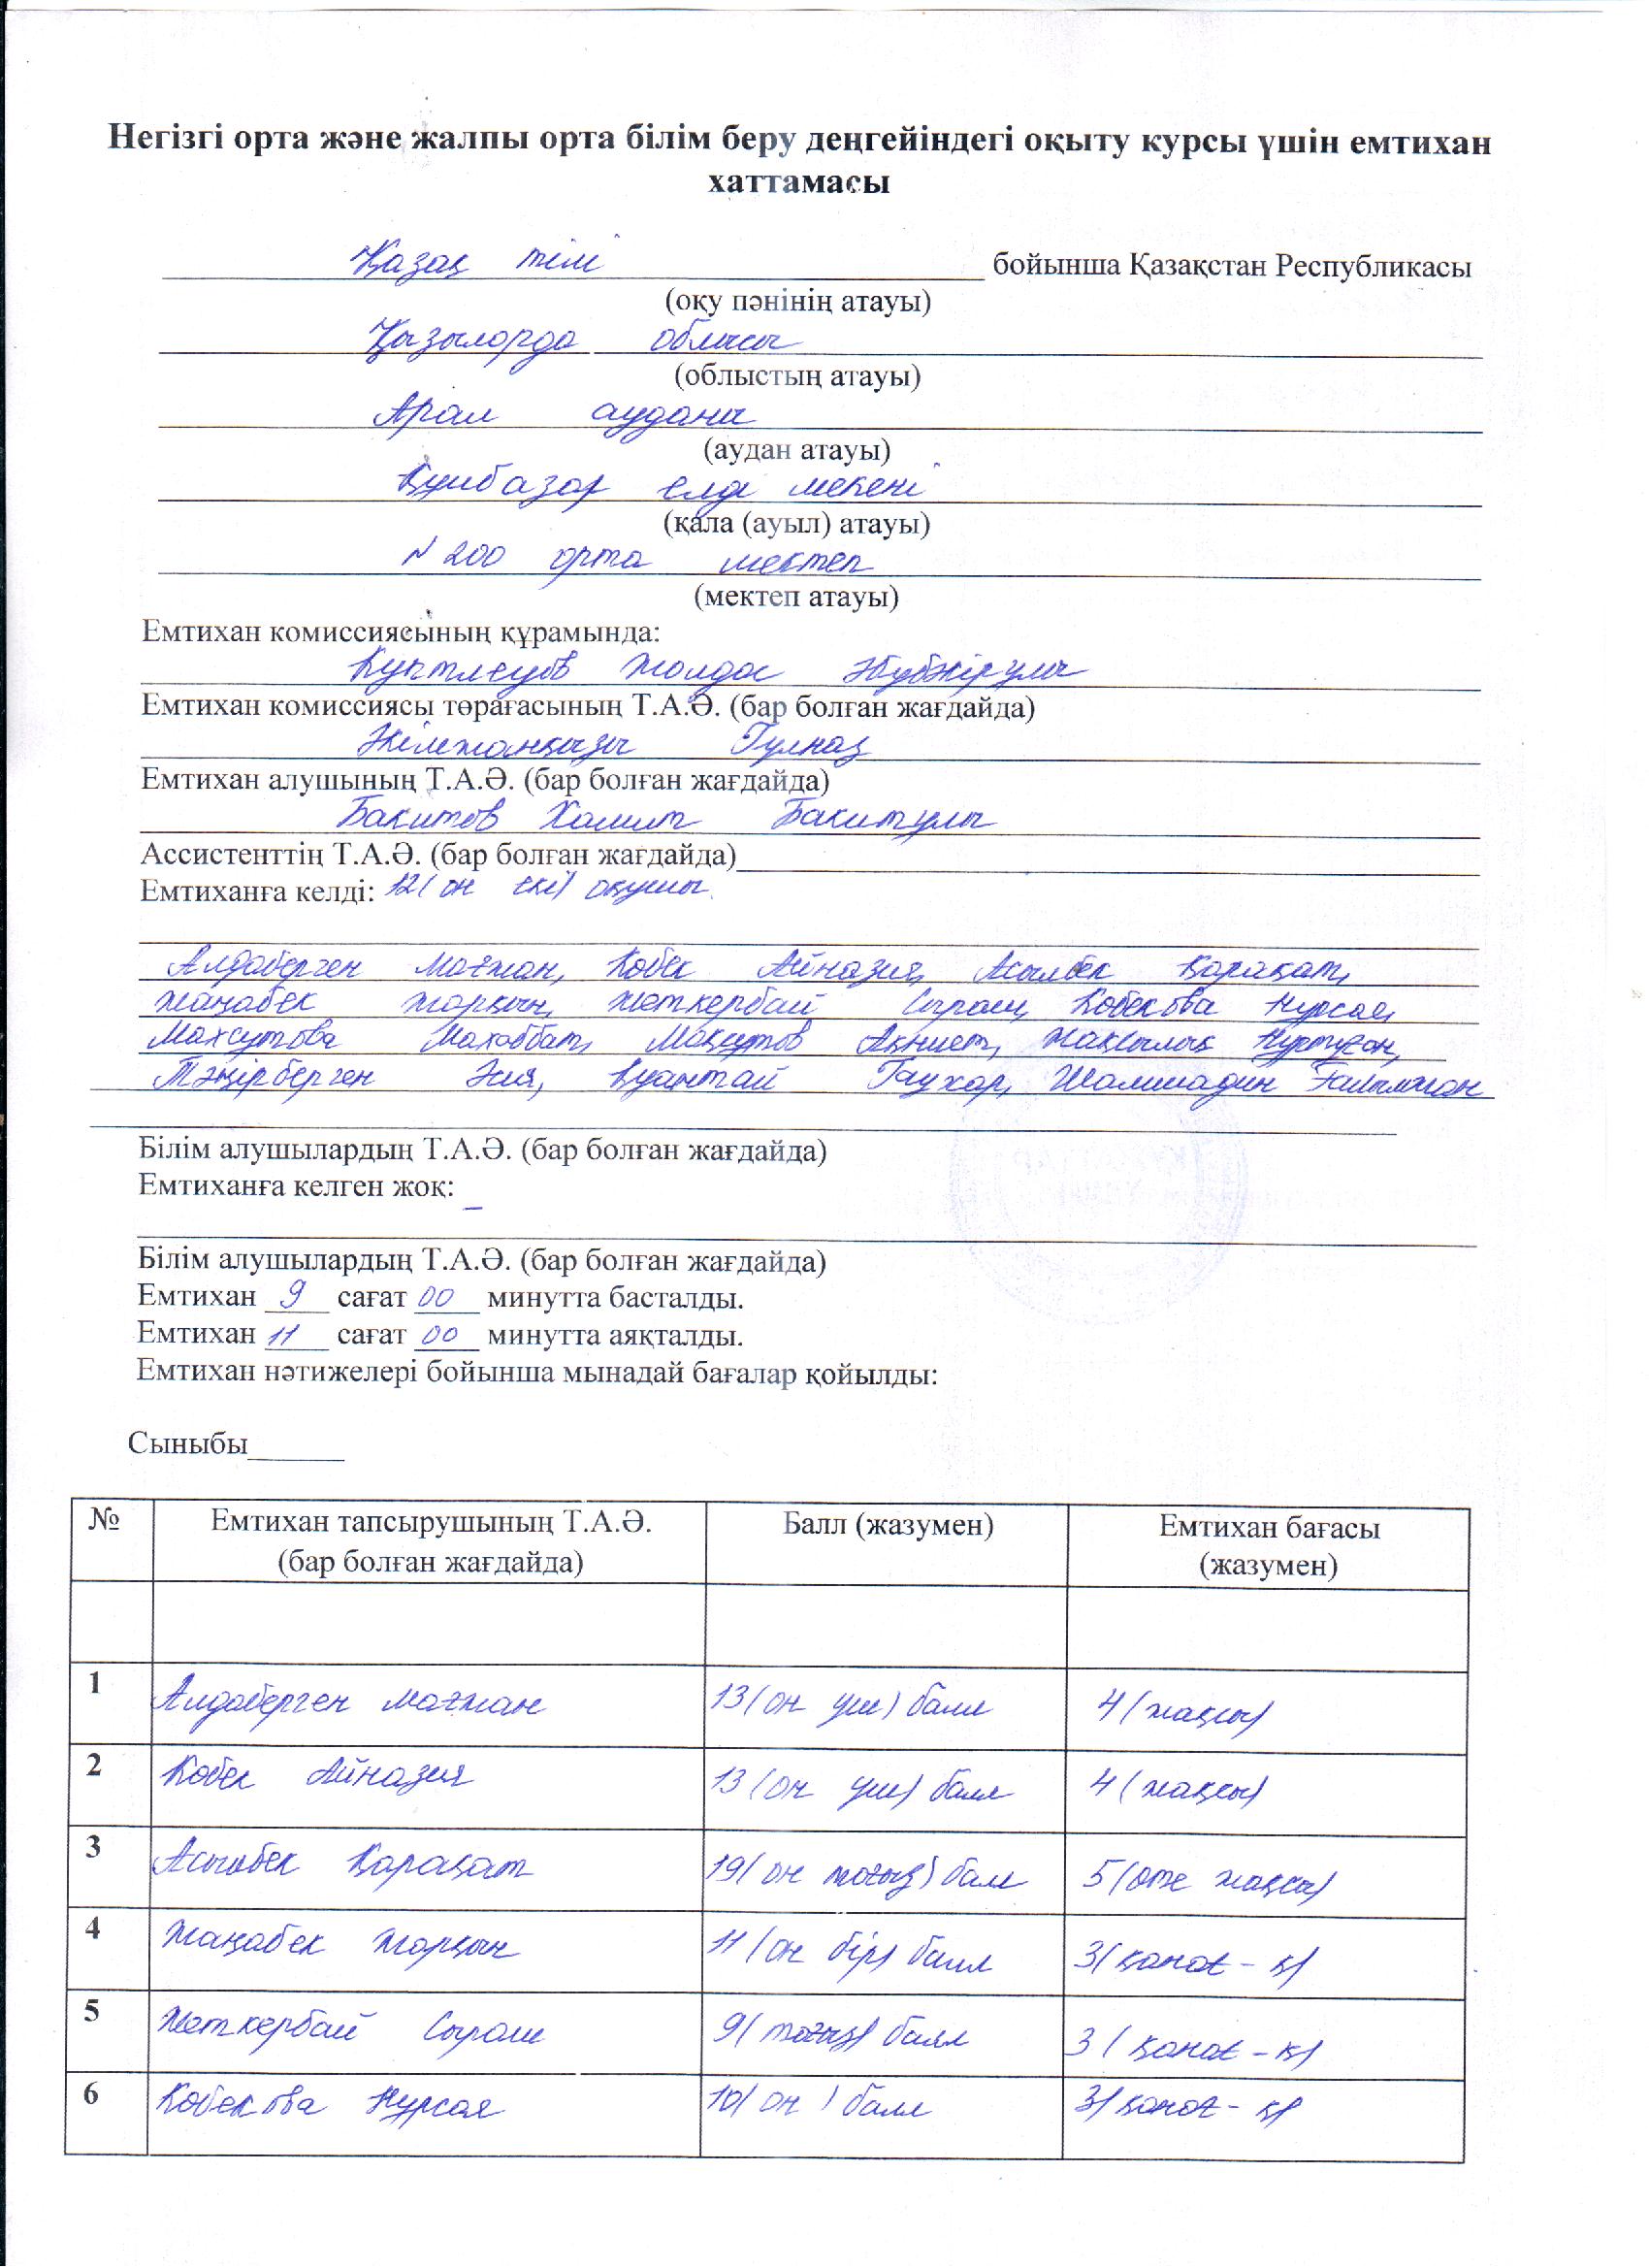 Негізгі орта және жалпы орта білім беру деңгейіндегі оқыту курсы үшін емтихан
хаттамасы
Қазақ тілі бойынша Қазақстан Республикасы
(оқу пәнінің атауы)
Қызылорда облысы
(облыстың атауы)
Арал ауданы
(аудан атауы)
Құмбазар елді мекені
(қала (ауыл) атауы)
№ 200 орта мектеп
(мектеп атауы)
Емтихан комиссиясының құрамында:
Куптлеуов Жолдас
Емтихан комиссиясы төрағасының Т.А.Ә. (бар болған жағдайда)
Әкімжанқызы Гүлназ
Емтихан алушының Т.А.Ә. (бар болған жағдайда)
Бакитов Хамит Бакитұлы
Ассистенттің Т.А.Ә. (бар болған жағдайда)
Емтиханға келді: 12( он екі) оқушы.
Алдаберген Мағжан, Көбек Айназия, Асылбек Қарақат,
Жаңабек Жарқын, Жеткербай Сырым, Көбекова Нұрсая,
Махсутова Махаббат, Мақсұтов Ақниет, Жақсылық Нұртуған,
Тәңірберген Әсия, Қуантай Гаухар, Шамшадин Ғалымжан
Білім алушылардың Т.А.Ә. (бар болған жағдайда)
Емтиханға келген жоқ: –
Білім алушылардың Т.А.Ә. (бар болған жағдайда)
Емтихан 9 сағат 00 минутта басталды.
Емтихан 11 сағат 00 минутта аяқталды.
Емтихан нәтижелері бойынша мынадай бағалар қойылды:
Сыныбы______
№ Емтихан тапсырушының Т.А.Ә. (бар болған жағдайда) Балл (жазумен) Емтихан бағасы (жазумен)
1 Алдаберген Мағжан 13( он үш) балл 4 ( жақсы)
2 Көбек Айназия 13 (он үш) балл 4 ( жақсы)
3 Асылбек Қарақат 19( он тоғыз) балл 5 (өте жақсы)
4 Жаңабек Жарқын 11 (он бір) балл 3( қанағ - қ)
5 Жеткербай Сырым 9( тоғыз) балл 3 ( қанағ - қ)
6 Көбекова Нұрсая 10( он ) балл 3( қанағ - қ)